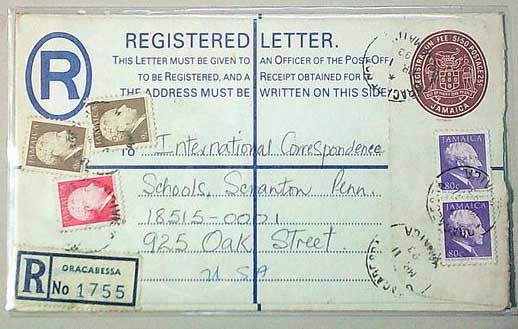 REGISTERED LETTER.
THIS LETTER MUST BE GIVEN TO AN OFFICER OF THE POST OFF
TO BE REGISTERED, AND A RECEIPT OBTAINED FOR
THE ADDRESS MUST BE WRITTEN ON THIS SIDE
R
REGISTRATION FEE
POSTAGE
JAMAICA
JAMAICA
JAMAICA
JAMAICA
JAMAICA
80c
JAMAICA
80c
TO International Correspondence
Schools, Scranton Penn.
18515-0001
925 Oak Street.
USA
R ORACABESSA
No 1755